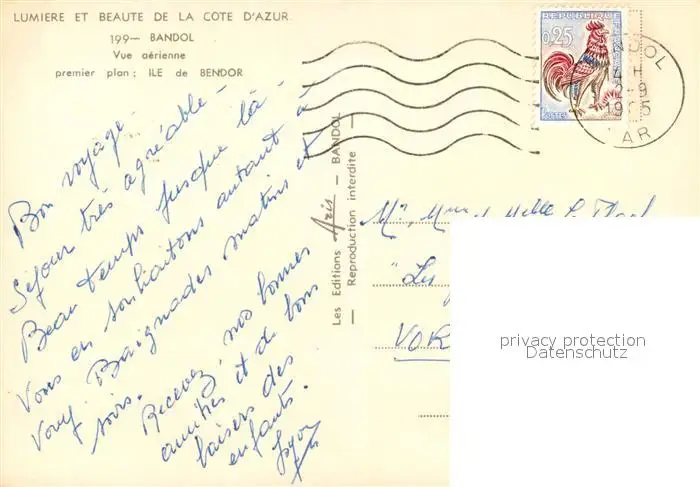 LUMIERE ET BEAUTE DE LA COTE D'AZUR
199— BANDOL
Vue aérienne
premier plan : ILE de BENDOR
Bon voyage -
Séjour très agréable -
Beau temps jusque là -
Vous en souhaitons autant à
Vous. Baignades matins et
soirs.
Recevez, nos bonnes
amitiés et de bons
baisers des
enfants.
Les Editions Aris — BANDOL
— Reproduction interdite —
REPUBLIQUE FRANÇAISE
0,25
POSTES
NDOL
4 H
2-9
1965
AR
Mr, Mme et Melle
"Les
VOR
privacy protection
Datenschutz